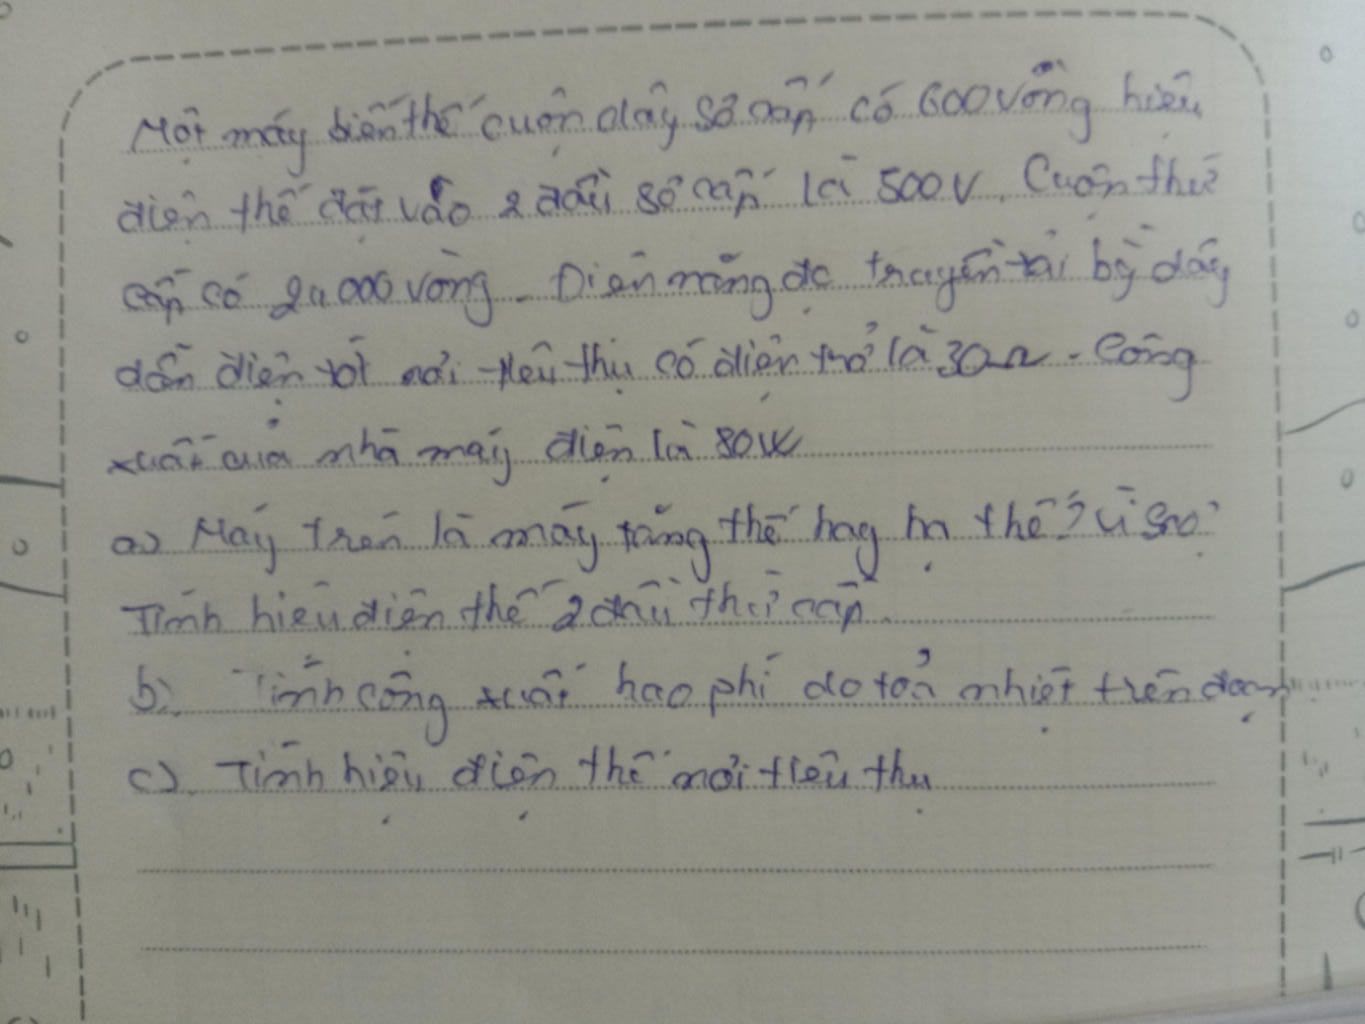 Một máy biến thế cuộn dây sơ cấp có 600 vòng hiệu
điện thế đặt vào 2 đầu sơ cấp là 500V. Cuộn thứ
cấp có 24000 vòng. Điện năng đc truyền tải bằ dây
dẫn điện tới nơi tiêu thụ có điện trở là 30Ω. Công
xuất của nhà máy điện là 80W
a) Máy trên là máy tăng thế hay hạ thế? Vì sao?
Tính hiệu điện thế 2 đầu thứ cấp.
b). Tính công xuất hao phí do toả nhiệt trên đoạn
c). Tính hiệu điện thế nơi tiêu thụ